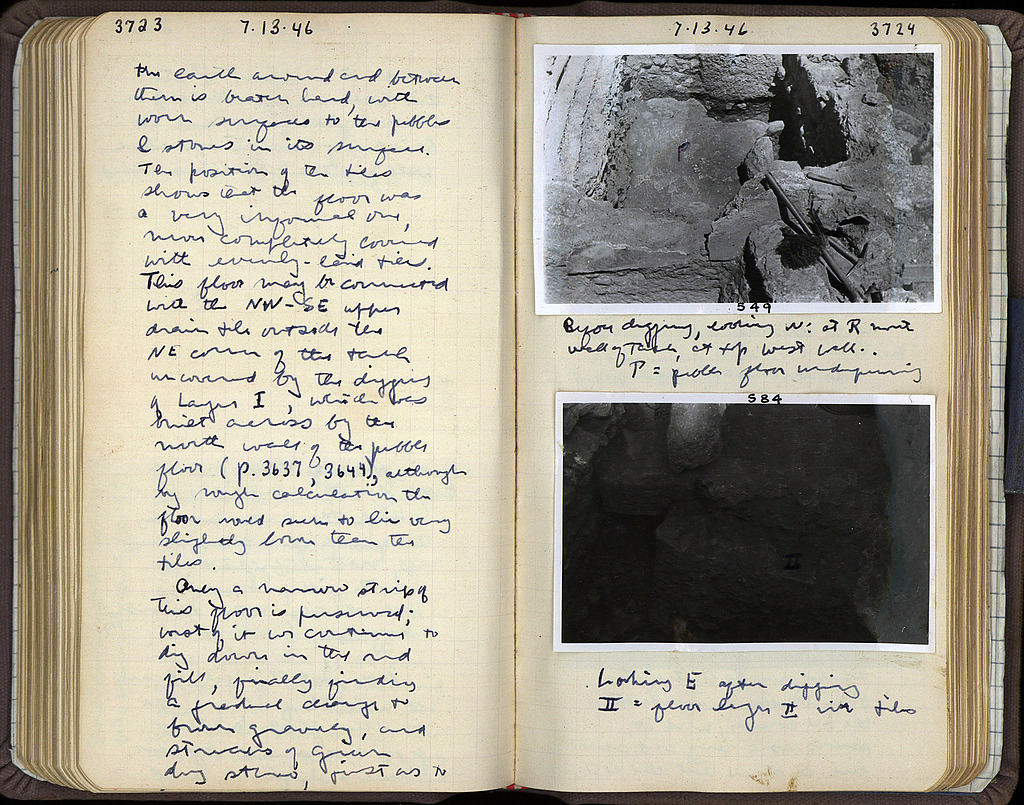 3723 7.13.46
the earth around and between
them is beaten hard, with
worn surfaces to the pebbles
& stones in its surface.
The position of the tiles
shows that the floor was
a very informal one,
never completely covered
with evenly-laid tiles.
This floor may be connected
with the NW-SE upper
drain tile outside the
NE corner of the tank
uncovered by the digging
of Layer I, which was
built across by the
north wall of the pebble
floor (p. 3637, 3644), although
by rough calculation the
floor would seem to lie very
slightly lower than the
tiles.
Only a narrow strip of
this floor is preserved;
west of it we continue to
dig down in the red
fill, finally finding
a gradual change to
brown gravelly, and
streaks of green
dug stereo, just as to
7.13.46 3724
P
549
Before digging, looking N: at R north
wall of Tank, at top west wall.
P = pebble floor underpinning
584
II
Looking E after digging
II = floor layer II with tiles